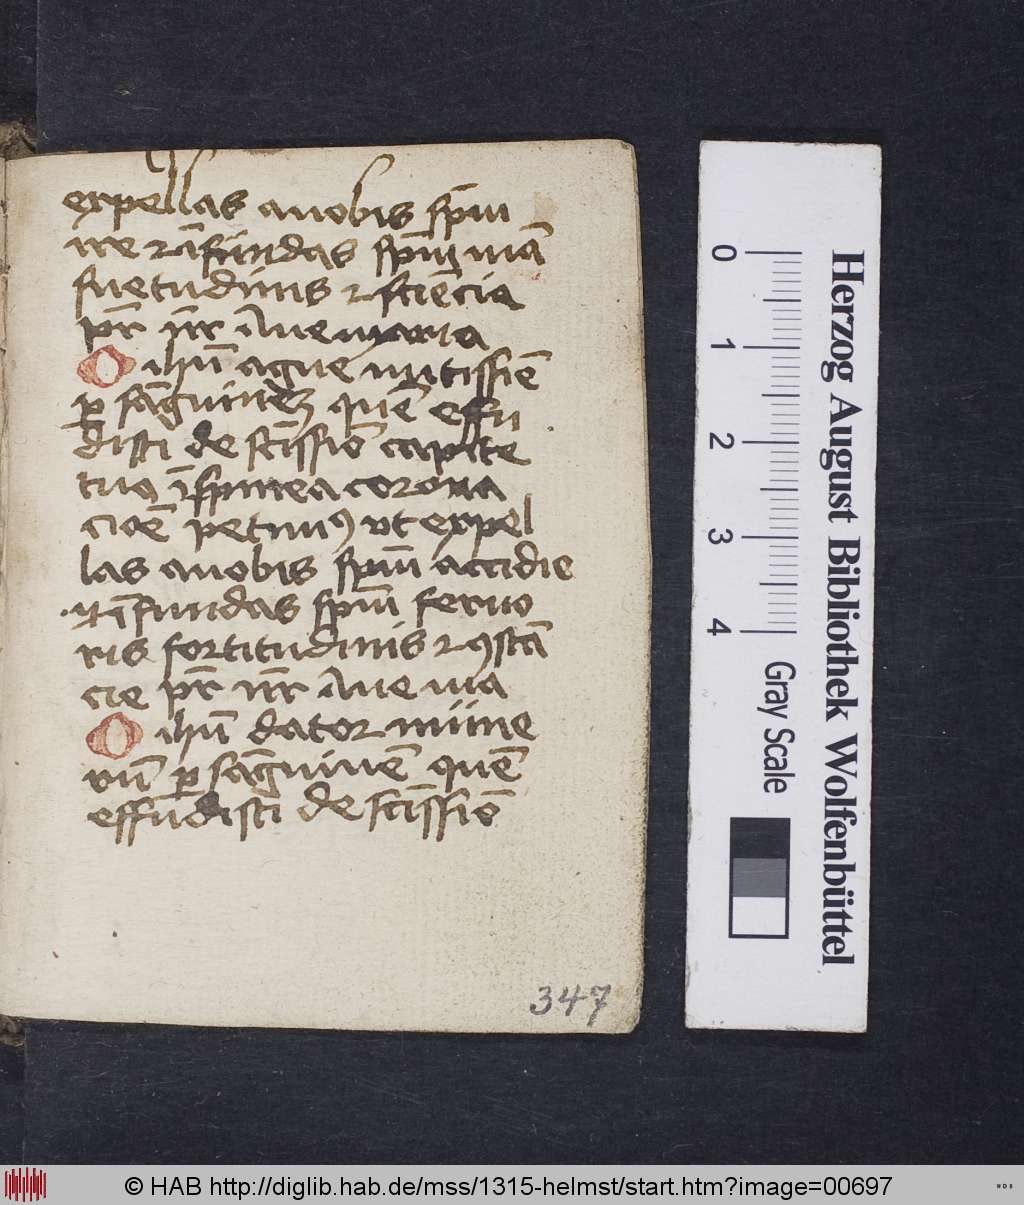 expellas a nobis sp̄m
ire ⁊ ī fundas sp̄m mā
suetudinis ⁊ sciēcie
pr̄ nr̄ Aue maria
O ihū agne mitissiē
ꝑ sāguinē quē effu
disti de sc̄issiō capite
tuo ī spinea corona
cioē petimꝰ vt expel
las a nobis sp̄m accidie
⁊ ī fundas sp̄m feruo
ris fortitudinis ⁊ ꝯstā
cie pr̄ nr̄ Aue ma
O ihū dator mune
rū ꝑ sāguinē quē
effudisti de sc̄issiō
347
0 1 2 3 4
Gray Scale
Herzog August Bibliothek Wolfenbüttel
© HAB http://diglib.hab.de/mss/1315-helmst/start.htm?image=00697